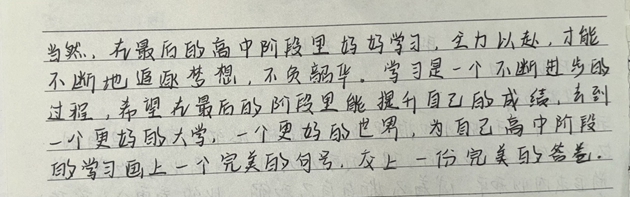 当然，在最后的高中阶段里好好学习，全力以赴，才能
不断地追逐梦想，不负韶华。学习是一个不断进步的
过程，希望在最后的阶段里能提升自己的成绩，去到
一个更好的大学，一个更好的世界，为自己高中阶段
的学习画上一个完美的句号，交上一份完美的答卷。